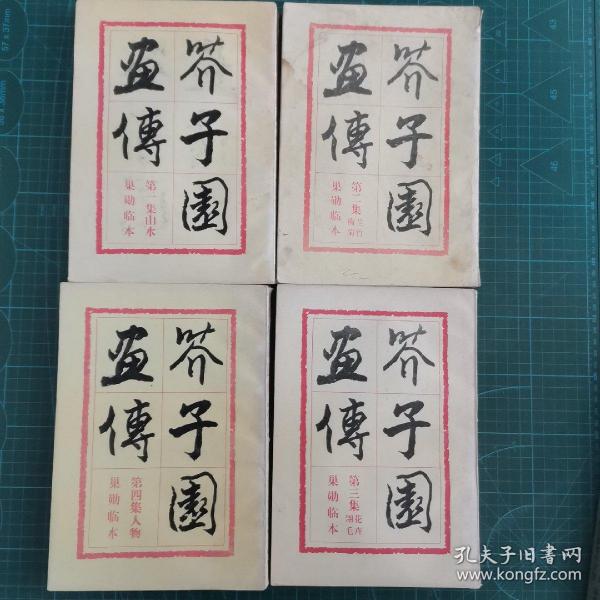 芥子園
畫傳
第一集山水
巢勋临本
芥子園
畫傳
第二集兰竹梅菊
巢勋临本
芥子園
畫傳
第四集人物
巢勋临本
芥子園
畫傳
第三集花卉翎毛
巢勋临本
45
46
孔夫子旧书网
www.kongfz.com